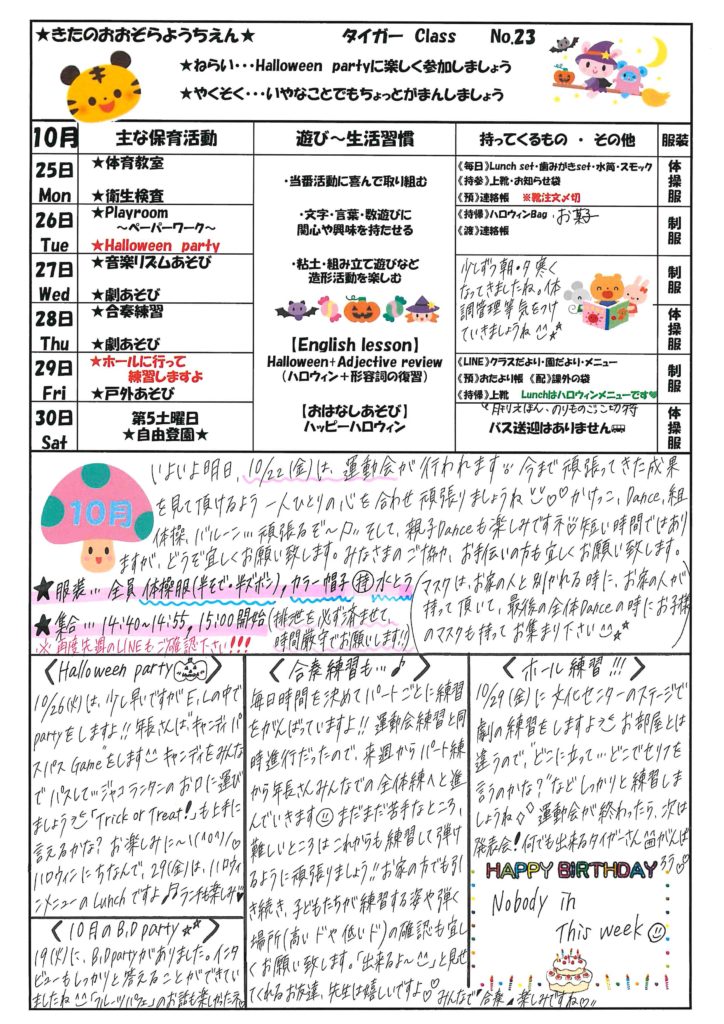 ★きたのおおぞらようちえん★ タイガー Class No.23
★ねらい・・・Halloween partyに楽しく参加しましょう
★やくそく・・・いやなことでもちょっとがまんしましょう
10月 主な保育活動 遊び～生活習慣 持ってくるもの ・ その他 服装
25日 Mon
★体育教室
★衛生検査
26日 Tue
★Playroom
～ペーパーワーク～
★Halloween party
27日 Wed
★音楽リズムあそび
★劇あそび
28日 Thu
★合奏練習
★劇あそび
29日 Fri
★ホールに行って
練習しますよ
★戸外あそび
30日 Sat
第5土曜日
★自由登園★
・当番活動に喜んで取り組む
・文字・言葉・数遊びに
関心や興味を持たせる
・粘土・組み立て遊びなど
造形活動を楽しむ
【English lesson】
Halloween+Adjective review
(ハロウィン＋形容詞の復習)
【おはなしあそび】
ハッピーハロウィン
《毎日》Lunch set・歯みがきset・水筒・スモック
《持参》上靴・お知らせ袋
《預》連絡帳 ※靴注文〆切
《持帰》ハロウィンBag・お菓子
《渡》連絡帳
少しずつ朝・夕寒く
なってきましたね。体
調管理等気をつけ
ていきましょうね
《LINE》クラスだより・園だより・メニュー
《預》おたより帳 《配》課外の袋
《持帰》上靴 Lunchはハロウィンメニューです
バス送迎はありません
体操服
制服
制服
体操服
制服
体操服
10月
いよいよ明日、10/22(金)は、運動会が行われます 今まで頑張ってきた成果
を見て頂けるよう一人ひとりの心を合わせ頑張りましょうね♡♡かけっこ、Dance、組
体操、バルーン…頑張るぞ～!! そして、親子Danceも楽しみですネ 短い時間ではあり
ますが、どうぞ宜しくお願い致します。みなさまのご協力、お手伝いの方も宜しくお願い致します。
★服装…全員 体操服(半そで・半ズボン)、カラー帽子 持 水とう
★集合…14:40～14:55、15:00開始(排泄を必ず済ませて、
時間厳守でお願いします!!)
※再度先週のLINEもご確認下さい!!!
(マスクは、お家の人と別かれる時に、お家の人が
持って頂いて、最後の全体Danceの時にお子様
のマスクも持ってお集まり下さい)
〈Halloween party〉
10/26(火)は、少し早いですがE.Lの中で
partyをしますよ!! 年長さんは"キャンディパ
スパスGame"をします キャンディをみんな
でパスしていジャコランタンのお口に運び
ましょう 「Trick or Treat!」も上手に
言えるかな? お楽しみに～\(^o^)/♡
ハロウィンにちなんで、29(金)は、ハロウィ
ンメニューのLunchですよ♪ランチも楽しみ♥
〈10月のB.D party〉
19(火)に、B.D partyがありました。インタ
ビューもしっかりと答えることができてい
ましたね 「フルーツパフェ」のお話も楽しかったネ
〈合奏練習も…♪〉
毎日時間を決めてパートごとに練習
をがんばっていますよ!! 運動会練習と同
時進行だったので、来週からパート練
から年長さんみんなでの全体練へと進
んでいきます まだまだ苦手なところ、
難しいところはこれからも練習して弾け
るように頑張りましょう!!お家の方でも引
き続き、子どもたちが練習する姿や弾く
場所(高いドや低いド)の確認も宜し
くお願い致します。「出来るよ～」と見せ
てくれるお友達、先生は嬉しいですよ♡ みんなで"合奏♪楽しみですね♡"
〈ホール練習!!!〉
10/29(金)に文化センターのステージで
劇の練習をしますよ お部屋とは
違うので、"どこに立って…どこでセリフを
言うのかな?"など しっかりと練習しま
しょうね 運動会が終わったら、次は
発表会! 何でも出来るタイガーさん がんば
ろう♡
HAPPY BIRTHDAY
Nobody in
This week